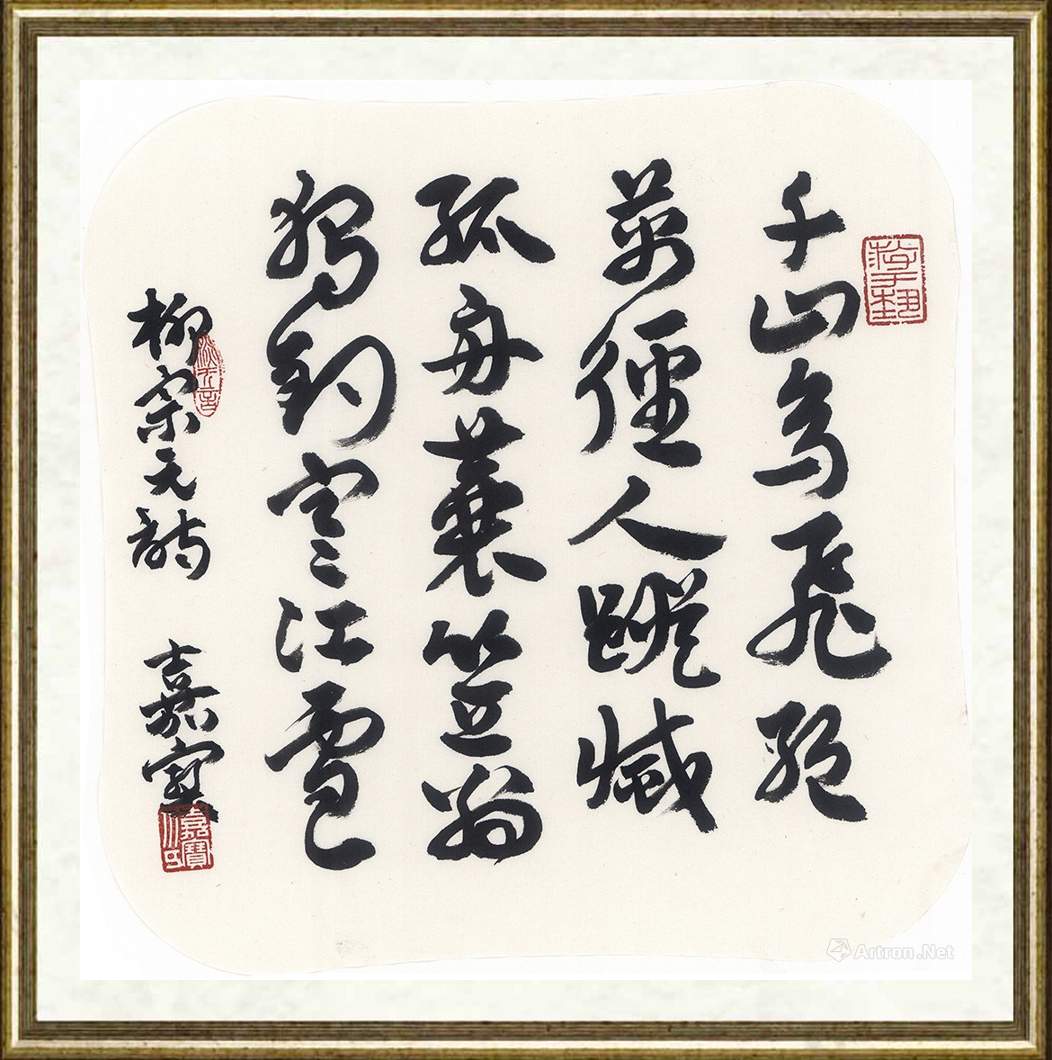 千山鳥飛絕
萬徑人蹤滅
孤舟蓑笠翁
獨釣寒江雪
柳宗元詩 嘉寶
嘉寶
Artron.Net